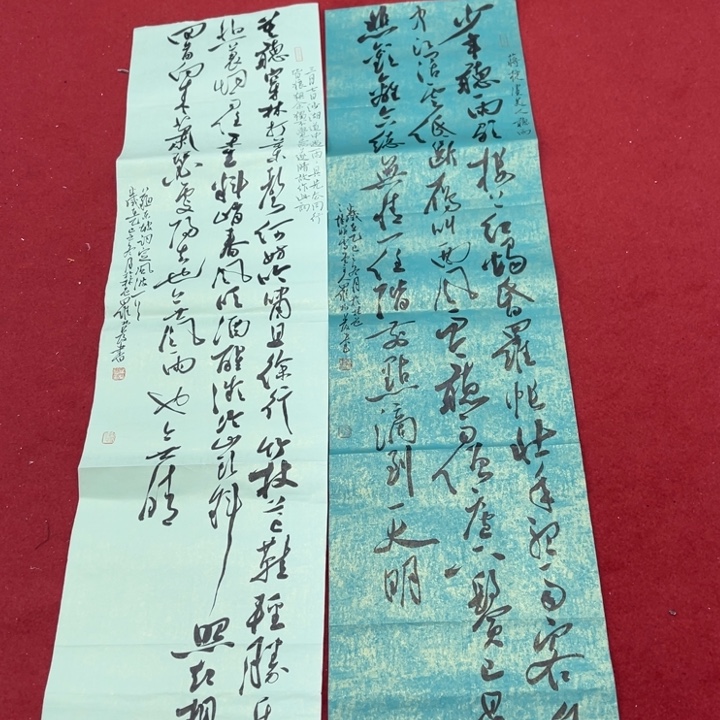 蔣捷虞美人聽雨
少年聽雨歌樓上紅燭昏羅帳壯年聽雨客舟
中江闊雲低斷雁叫西風而今聽雨僧廬下鬢已星
悲歡離合總無情一任階前點滴到天明
歲在乙巳之冬月
三月七日沙湖道中遇雨雨具先去同行
皆狼狽余獨不覺已而遂晴故作此詞
莫聽穿林打葉聲何妨吟嘯且徐行竹杖芒鞋輕勝馬
怕一蓑烟雨任平生料峭春風吹酒醒微冷山頭斜
照却相
回首向來蕭瑟處歸去也無風雨也無晴
蘇東坡詞定風波一首
歲在乙巳之冬月